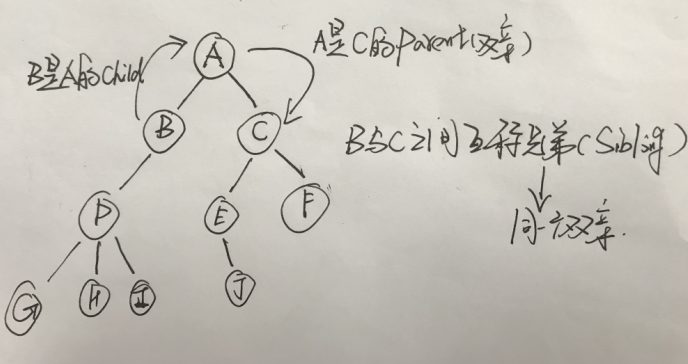 A是C的parent(双亲)
B是A的child
A
B C
B与C之间互称兄弟(Sibling)
同一双亲.
D E F
G H I J